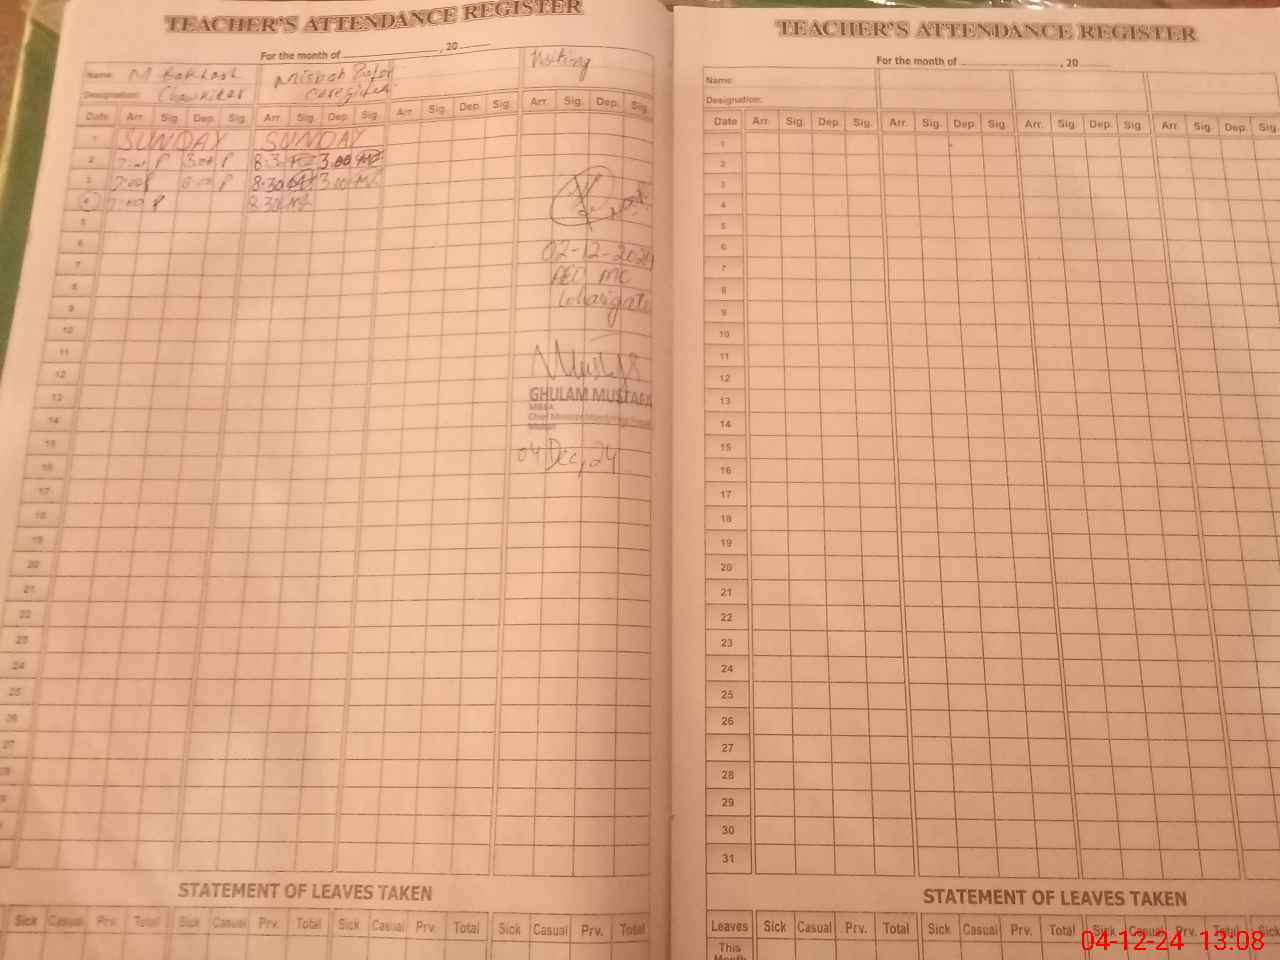 TEACHER'S ATTENDANCE REGISTER
For the month of , 20
Name: M Bakhash Misbah Visiting
Designation: Chowkidar Caregiver
Date Arr. Sig. Dep. Sig. Arr. Sig. Dep. Sig. Arr. Sig. Dep. Sig. Arr. Sig. Dep. Sig.
1 SUNDAY SUNDAY
2 7:00 P 3:00 P 8:3 3:00
3 7:00 P P 8:30 3:00
4 7:00 P 8:30
5
6
7
8
9
10
11
12
13
14
15
16
17
18
19
20
21
22
23
24
25
26
27
28
02-12-2024
AEO MC
GHULAM MUSTAFA
MEA
04 Dec, 24
STATEMENT OF LEAVES TAKEN
Sick Casual Prv. Total Sick Casual Prv. Total Sick Casual Prv. Total Sick Casual Prv. Total
TEACHER'S ATTENDANCE REGISTER
For the month of , 20
Name:
Designation:
Date Arr. Sig. Dep. Sig. Arr. Sig. Dep. Sig. Arr. Sig. Dep. Sig. Arr. Sig. Dep. Sig.
1
2
3
4
5
6
7
8
9
10
11
12
13
14
15
16
17
18
19
20
21
22
23
24
25
26
27
28
29
30
31
STATEMENT OF LEAVES TAKEN
Leaves Sick Casual Prv. Total Sick Casual Prv. Total Sick Casual Prv. Total Sick
This
Month
04-12-24 13:08